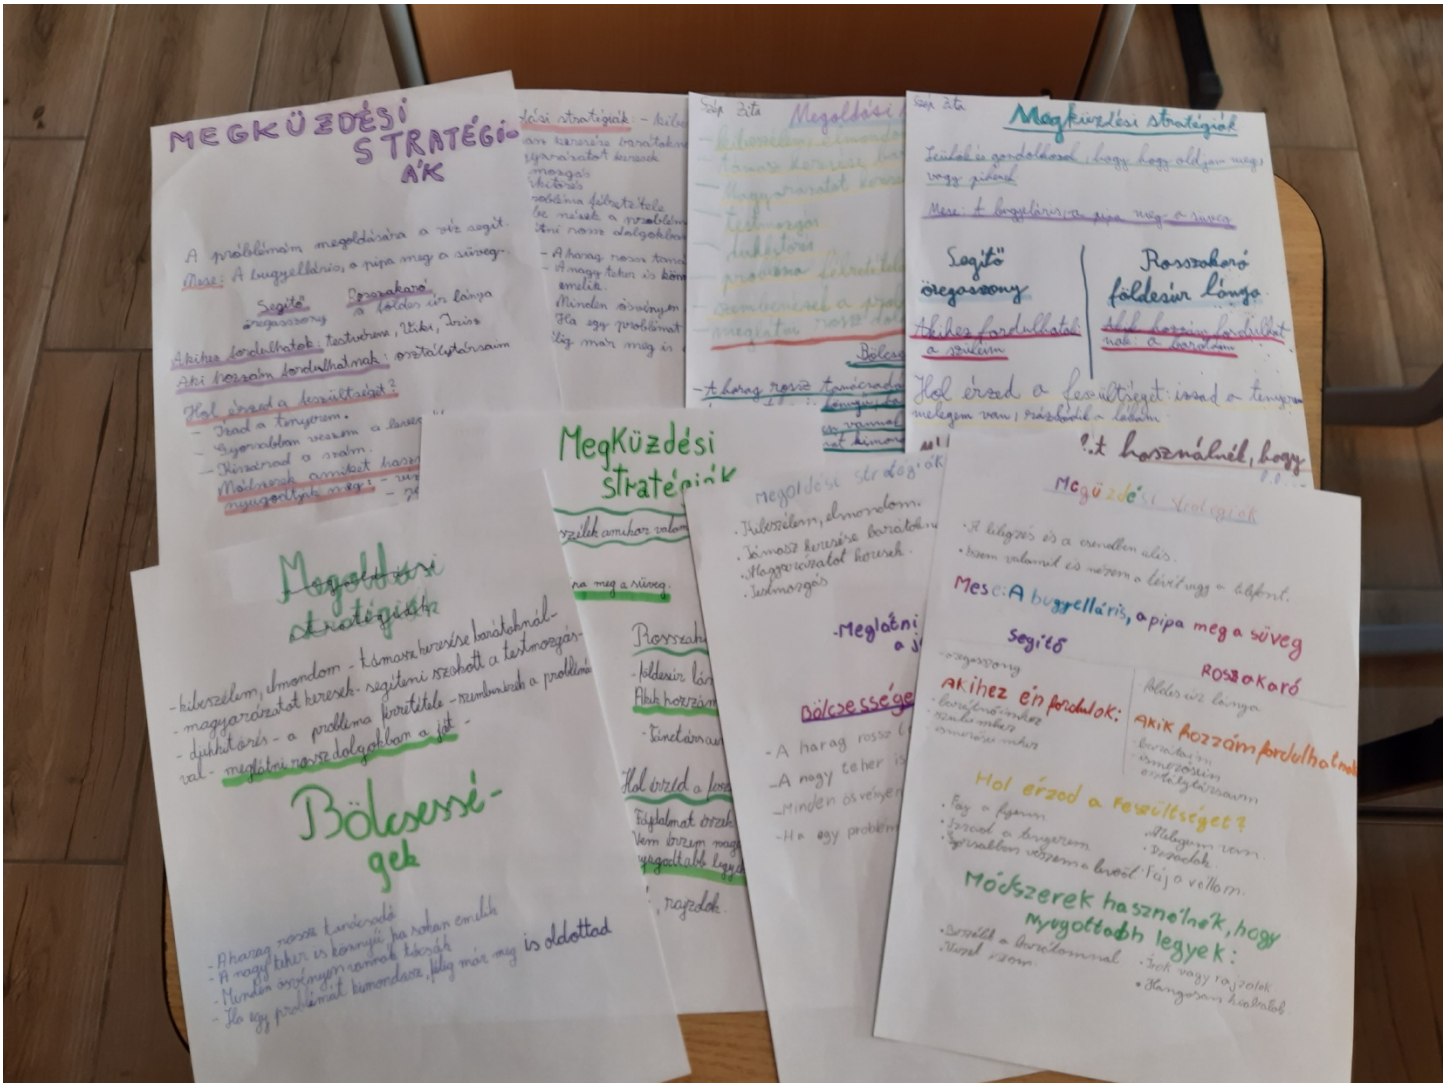 MEGKÜZDÉSI
STRATÉGI-
ÁK
A próblémám megoldására a víz segít.
Mese: A bugyelláris, a pipa meg a süveg.
Segítő
Rosszakaró
öregasszony
a földes úr lánya
Akihez fordulhatok: testvérem,
Aki hozzám fordulhatnak: osztálytársaim
Hol érzed a feszültséget?
- Izad a tenyerem.
- Gyorsabban veszem a
- Kiszárad a szám.
Módszerek amiket hasz
nyugodtják meg:
stratégiák: - kibe
keresése barátokn
magyarázatot keresek
mozgás
probléma félretétele
- A harag rossz taná
- A nagy teher is kön
emelik.
Minden ösvényen
Ha egy problémát
félig már meg is
Szép Zita
Megoldási
- kibeszélem, elmondo
- támasz keresése bar
- magyarázatot keres
- testmozgás
- dühkitörés
- probléma félretétele
- szembenézek a prob
- meglátni rossz dol
Bölcse
- A harag rossz tanácsadó
Szép Zita
Megküzdési stratégiák
Leülök és gondolkozok, hogy hogy oldjam meg,
vagy pihenek
Mese: A bugyelláris, a pipa meg a süveg
Segítő
öregasszony
Rosszakaró
földesúr lánya
Akihez fordulhatok:
a szüleim
Akik hozzám fordulhat
nak: a barátaim
Hol érzed a feszültséget: izzad a tenyerem
melegem van,
t használnél, hogy
Megoldási
stratégiák
- kibeszélem, elmondom - támasz keresése barátoknál -
magyarázatot keresek - segíteni szokott a testmozgás -
- dühkitörés - a probléma félretétele - szembenézek a problémá
val - meglátni rossz dolgokban a jót -
Bölcsessé-
gek
- A harag rossz tanácsadó
- A nagy teher is könnyű, ha sokan emelik
- Minden ösvényen vannak tócsák
- Ha egy problémát kimondasz, félig már meg is oldottad
MegKüzdési
stratégiák
szélek amikor valam
pa meg a süveg.
Rosszak
- földesúr lán
Akik hozzám
Hol érzed a fesz
Fájdalmat érzek
Nem érzem mag
nyugodtabb legyek
, rajzolok.
Megoldási stratégiák
• Kibeszélem, elmondom.
• Támasz keresése barátokn
• Magyarázatot keresek.
• Testmozgás
-Meglátni
a jó
Bölcsessége
- A harag rossz t
- A nagy teher is
- Minden ösvényen
- Ha egy problém
Megüzdési stratégiák
• A lélegzés és a csendben ülés.
• Iszom valamit és nézem a tévét vagy a telefont.
Mese: A bugyelláris, a pipa meg a süveg
Segítő
Rosszakaró
- öregasszony
földes úr lánya
Akihez én fordulok:
- barátnőimhez
- szüleimhez
- ismerőseimhez
Akik hozzám fordulhatnak
- barátaim
- ismerőseim
- osztálytársaim
Hol érzed a feszültséget?
• Fáj a fejem
• Izzad a tenyerem
• Gyorsabban veszem a levegőt
• Melegem van.
• Izzadok.
• Fáj a vállam.
Módszerek használnék, hogy
nyugottabb legyek:
• Beszélek a barátommal
• Vizet iszom.
• Írok vagy rajzolok
• Hangosan kiabálok